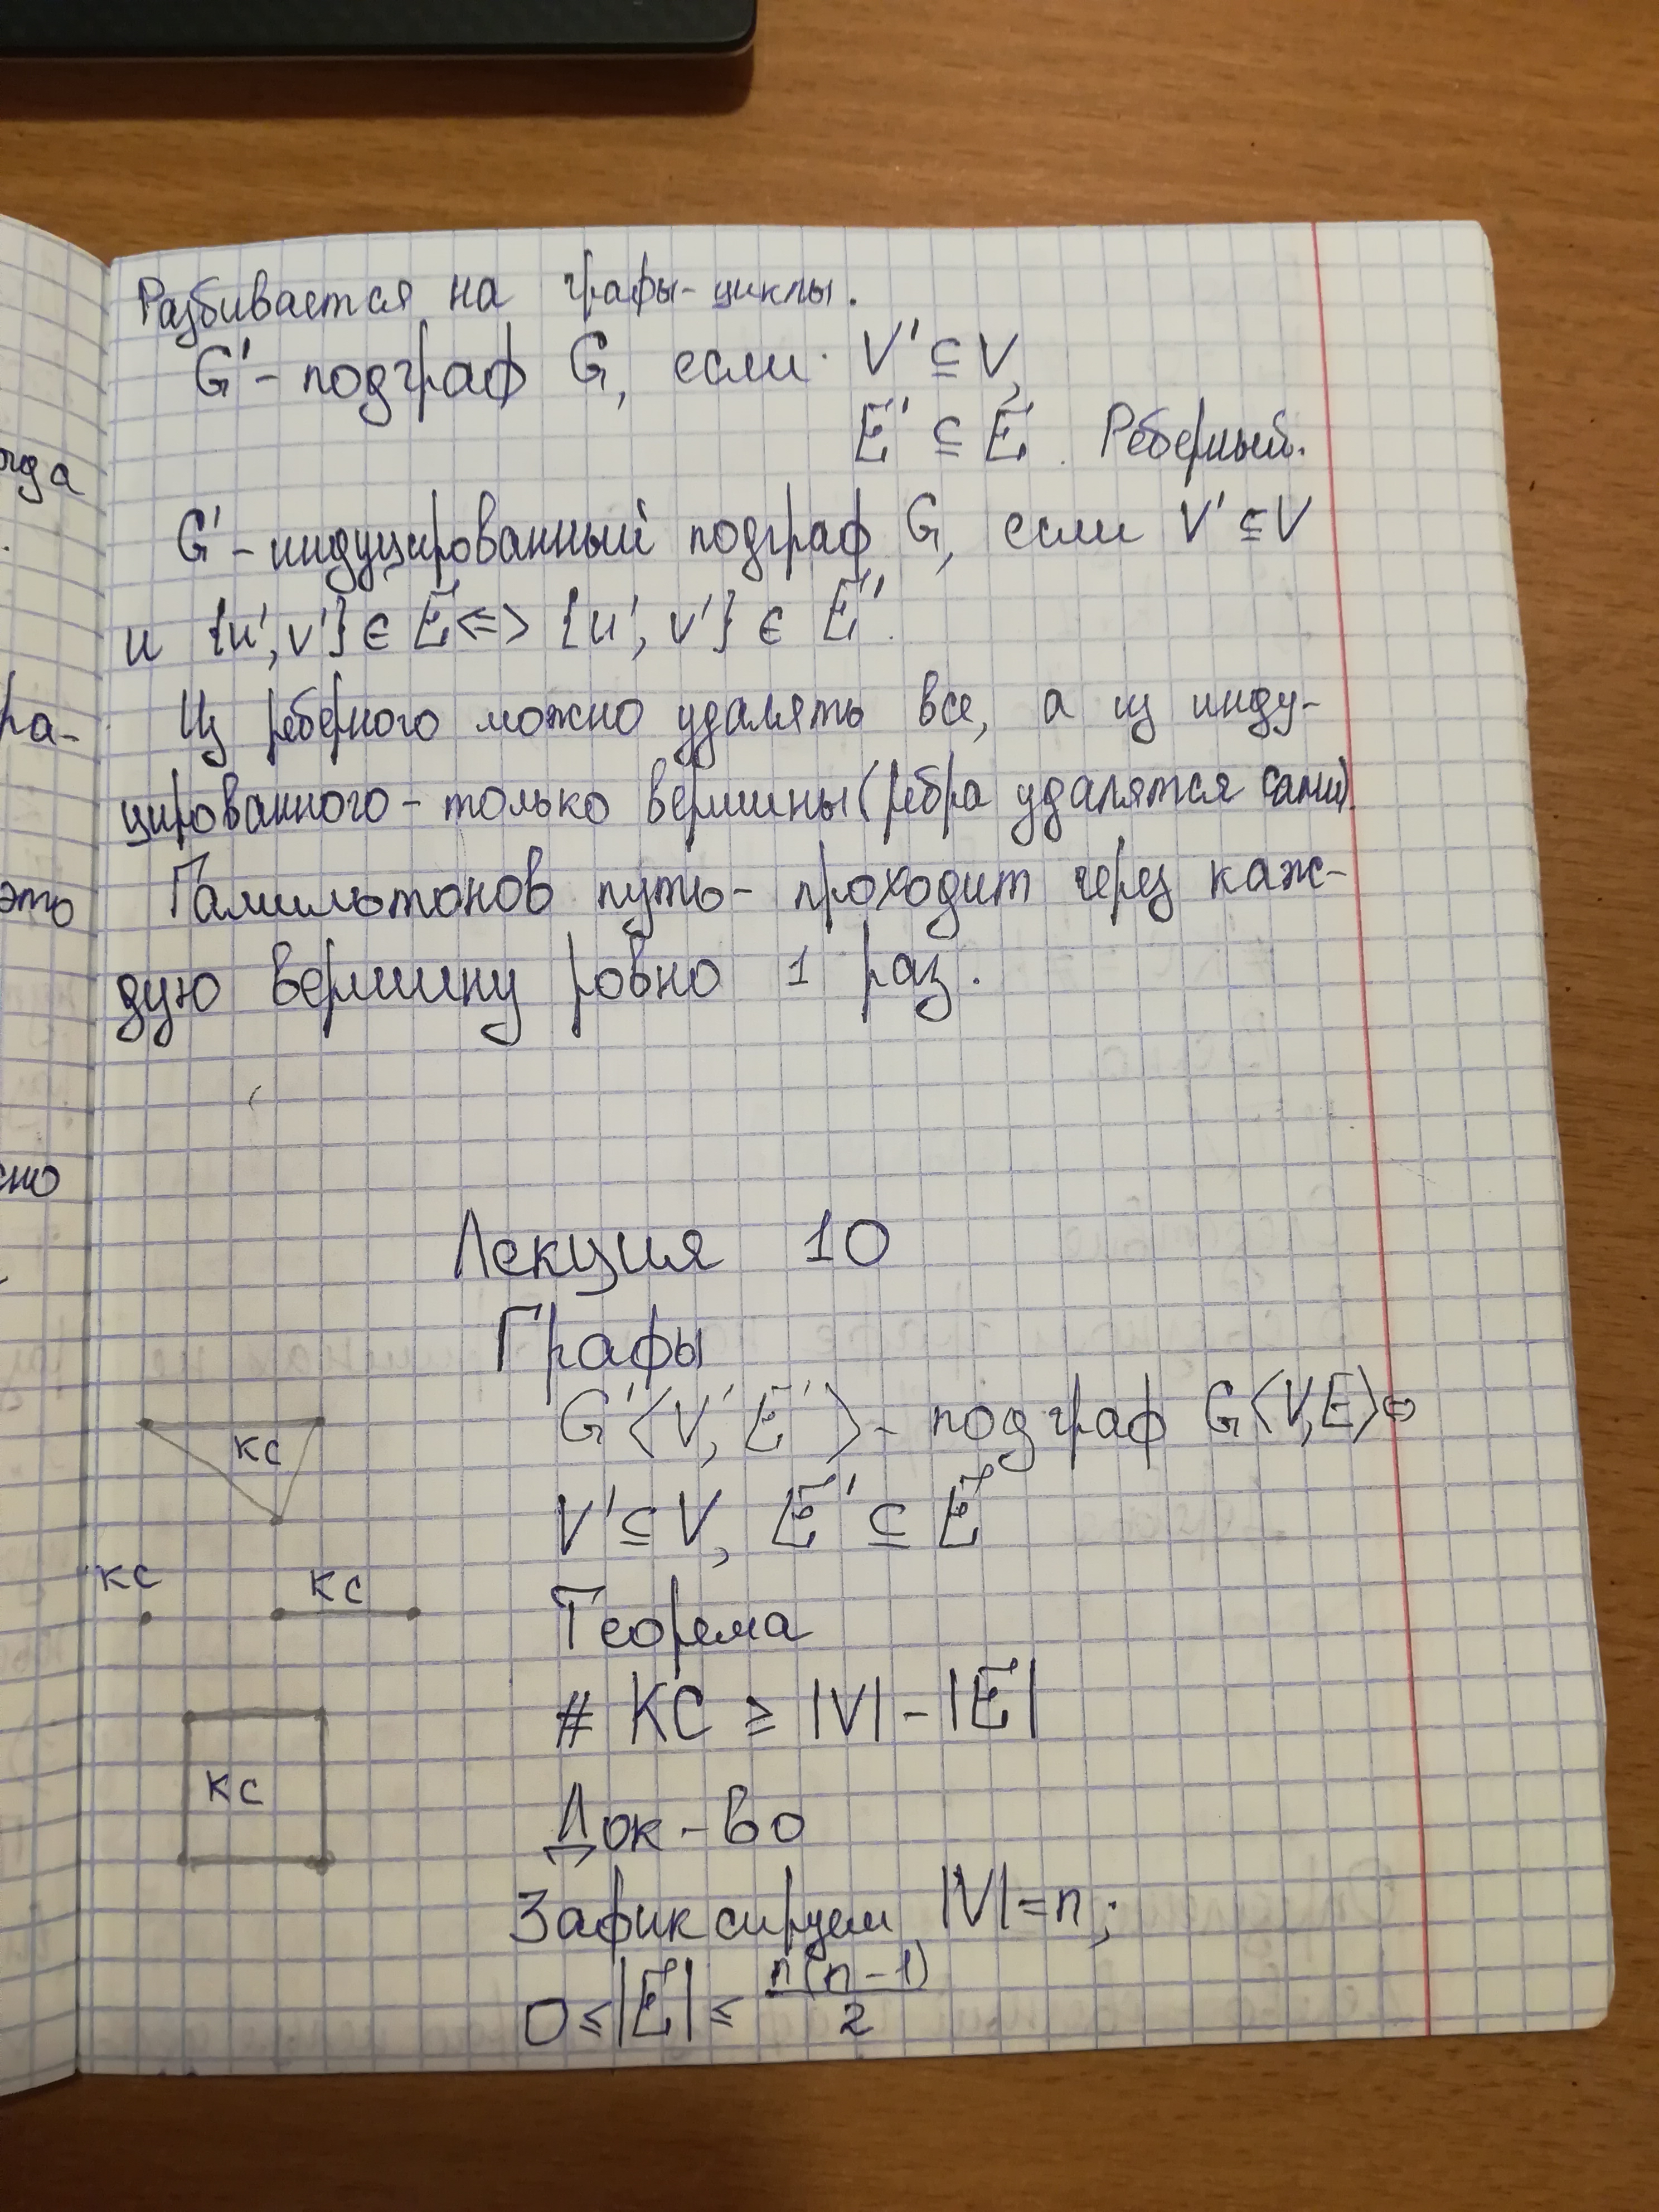 Разбивается на графы-циклы.
G' - подграф G, если V' ⊆ V,
E' ⊆ E. Реберный.
огда
G' - индуцированный подграф G, если V' ⊆ V
и {u', v'} ∈ E <=> {u', v'} ∈ E'.
Из реберного можно удалять все, а из инду-
ра-
цированного - только вершины (ребра удалятся сами)
Гамильтонов путь - проходит через каж-
это
дую вершину ровно 1 раз.
сно
Лекция 10
Графы
G'⟨V', E'⟩ - подграф G⟨V, E⟩ ⇔
кс
V' ⊆ V, E' ⊆ E
кс
кс
Теорема
# КС ≥ |V| - |E|
кс
Док-во
Зафиксируем |V| = n;
0 ≤ |E| ≤ n(n-1)/2